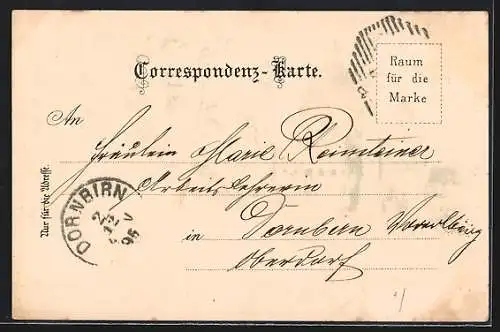 Correspondenz-Karte.
Raum
für die
Marke
An
Fräulein Marie Rheinsteiner
Arbeitslehrerin
in Dornbirn Vorarlberg
Oberdorf
Nur für die Adresse.
DORNBIRN
2
12
96
V